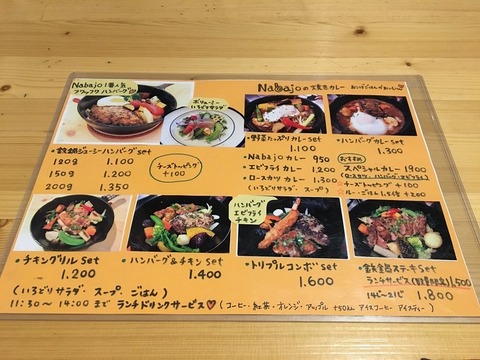 Nabajo1番人気
フワッフワ ハンバーグ
ボリューミー
いろどりサラダ
・鉄鍋ジューシーハンバーグset
120g 1.100
150g 1.200
200g 1.350
チーズトッピング
+100
Nabajoの焼きカレー
・野菜たっぷりカレーset
1.100
・ハンバーグカレーset
1.300
・Nabajoカレー 950
・エビフライカレー 1.200
・ロースカツカレー 1.300
(いろどりサラダ・スープ)
おすすめ
スペシャルカレー 1900
(ロースカツ、ハンバーグ、エビフライ)
・チーズトッピング +100
・ルー・ごはん1.5倍 +200
・チキングリルset
1.200
・ハンバーグ&チキンset
1.400
ハンバーグ
エビフライ
チキン
・トリプルコンボset
1.600
・鉄鍋ステーキset
ランチサービス(数量限定)1,500
1.800
(いろどりサラダ・スープ・ごはん)
11:30〜14:00まで ランチドリンクサービス♡(コーヒー・紅茶・オレンジ・アップル +50 アイスコーヒー アイスティー)